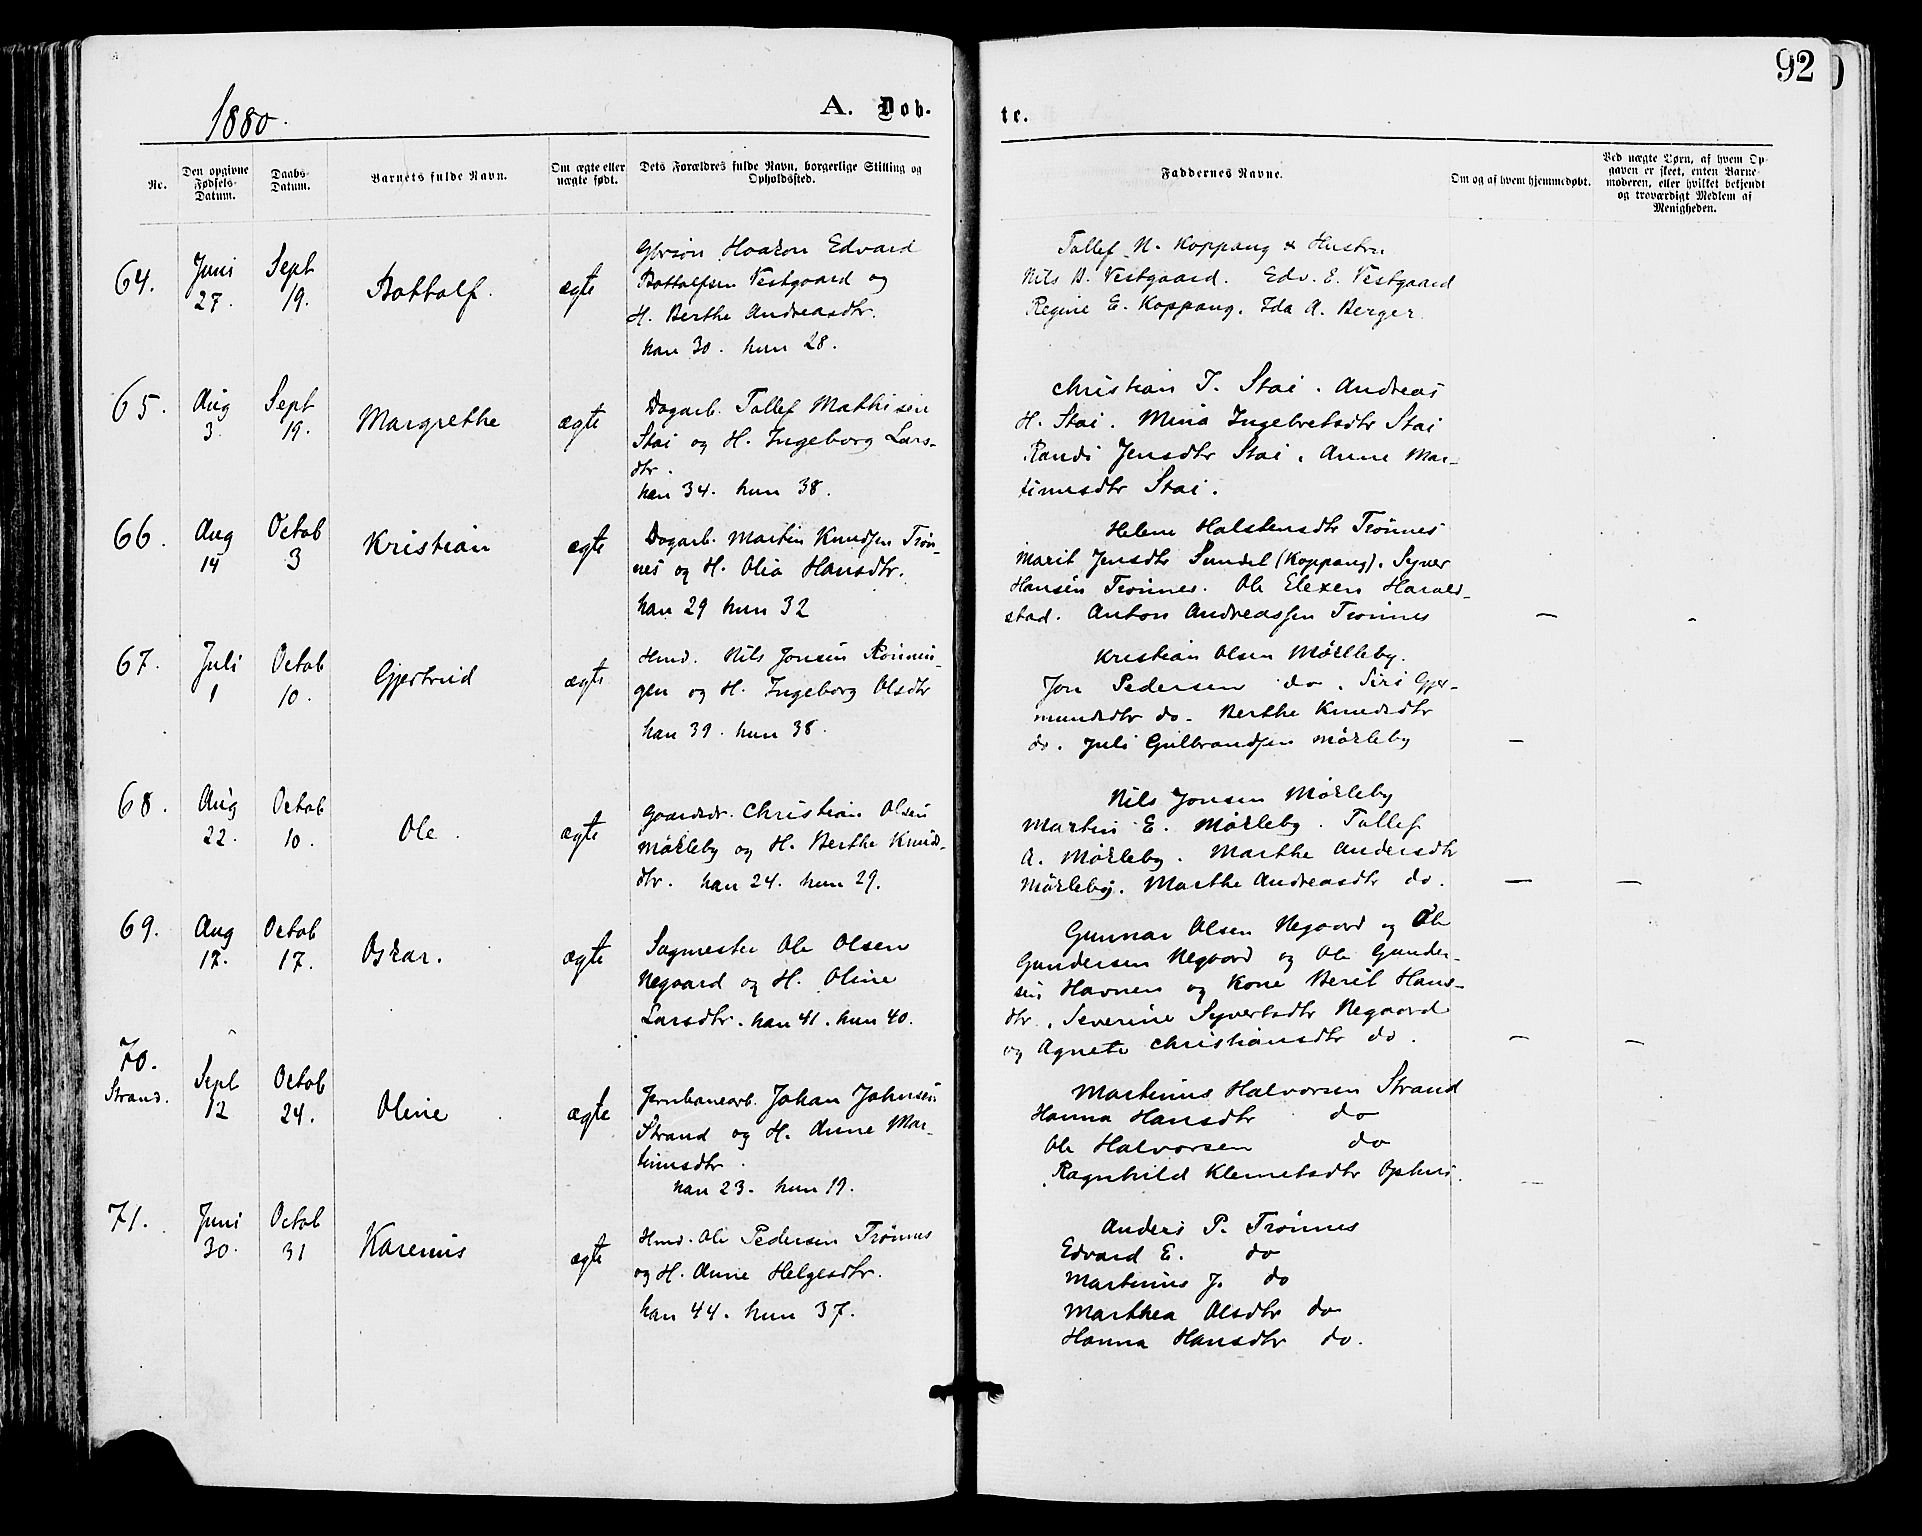 92
1880.
A. Døb-
te.
No.
Den opgivne
Fødsels-
Datum.
Daabs-
Datum.
Barnets fulde Navn.
Om ægte eller
uægte født.
Dets Forældres fulde Navn, borgerlige Stilling og
Opholdssted.
Faddernes Navne.
Om og af hvem hjemmedøbt.
Ved uægte Børn, af hvem Op-
gaven er skeet, enten Barne-
moderen, eller hvilket bekjendt
og troværdigt Medlem af
Menigheden.
64.
Juni
27.
Sept
19.
Bottolf.
ægte
Haakon Edvard
Bottolfsen Vestgaard og
H. Berthe Andreasdtr.
han 30. hun 28.
Tollef N. Koppang & Hustru
Nils B. Vestgaard. Edv. E. Vestgaard
Regine E. Koppang. Ida A. Berger.
65.
Aug
3.
Sept
19.
Margrethe
ægte
Dagarb. Tollef Mathisen
Stai og H. Ingeborg Lars-
dtr.
han 34. hun 38.
Christian J. Stai. Andreas
H. Stai. Mina Ingebretsdtr Stai
Randi Jensdtr Stai. Anne Mar-
tinusdtr Stai.
66.
Aug
14
Octob
3
Kristian
ægte
Dagarb. Martin Knudsen Trøn-
nes og H. Olia Hansdtr.
han 29 hun 32
Helene Halstensdtr Trønnes
Marit Jensdtr Sundet (Koppang). Syver
Hansen Trønnes. Ole Elexen Harald-
stad. Anton Andreassen Trønnes
67.
Juli
1
Octob
10.
Gjertrud
ægte
Hmd. Nils Jonsen Rønnin-
gen og H. Ingeborg Olsdtr
han 39. hun 38.
Kristian Olsen Mørkeby.
Jon Pedersen do. Siri Gjer-
mundsdtr do. Berthe Knudsdtr
do. Juli Gulbrandsen Mørkeby
68.
Aug
22.
Octob
10.
Ole.
ægte
Gaardbr. Christian Olsen
Mørkeby og H. Berthe Knuds-
dtr. han 24. hun 29.
Nils Jonsen Mørkeby
Martin E. Mørkeby. Tollef
A. Mørkeby. Marthe Andersdtr
Mørkeby. Marthe Andreasdtr do.
69.
Aug
17.
Octob
17.
Oskar.
ægte
Sagmester Ole Olsen
Negaard og H. Oline
Larsdtr. han 41. hun 40.
Gunnar Olsen Negaard og Ole
Gundersen Negaard og Ole Gunder-
sen Havnen og Kone Berit Hans-
dtr. Severine Syvertsdtr Negaard
og Agnete Christiansdtr do.
70.
Strand.
Sept
12
Octob
24.
Oline
ægte
Jernbanearb. Johan Johnsen
Strand og H. Anne Mar-
tinusdtr.
han 23. hun 19.
Martinus Halvorsen Strand
Hanna Hansdtr do
Ole Halvorsen do
Ragnhild Klemetsdtr Ophus.
71.
Juni
30.
Octob
31
Karenus
ægte
Hmd. Ole Pedersen Trønnes
og H. Anne Helgesdtr.
han 44. hun 37.
Anders P. Trønnes
Edvard E. do
Martinus J. do
Marthea Olsdtr do
Hanna Hansdtr do.